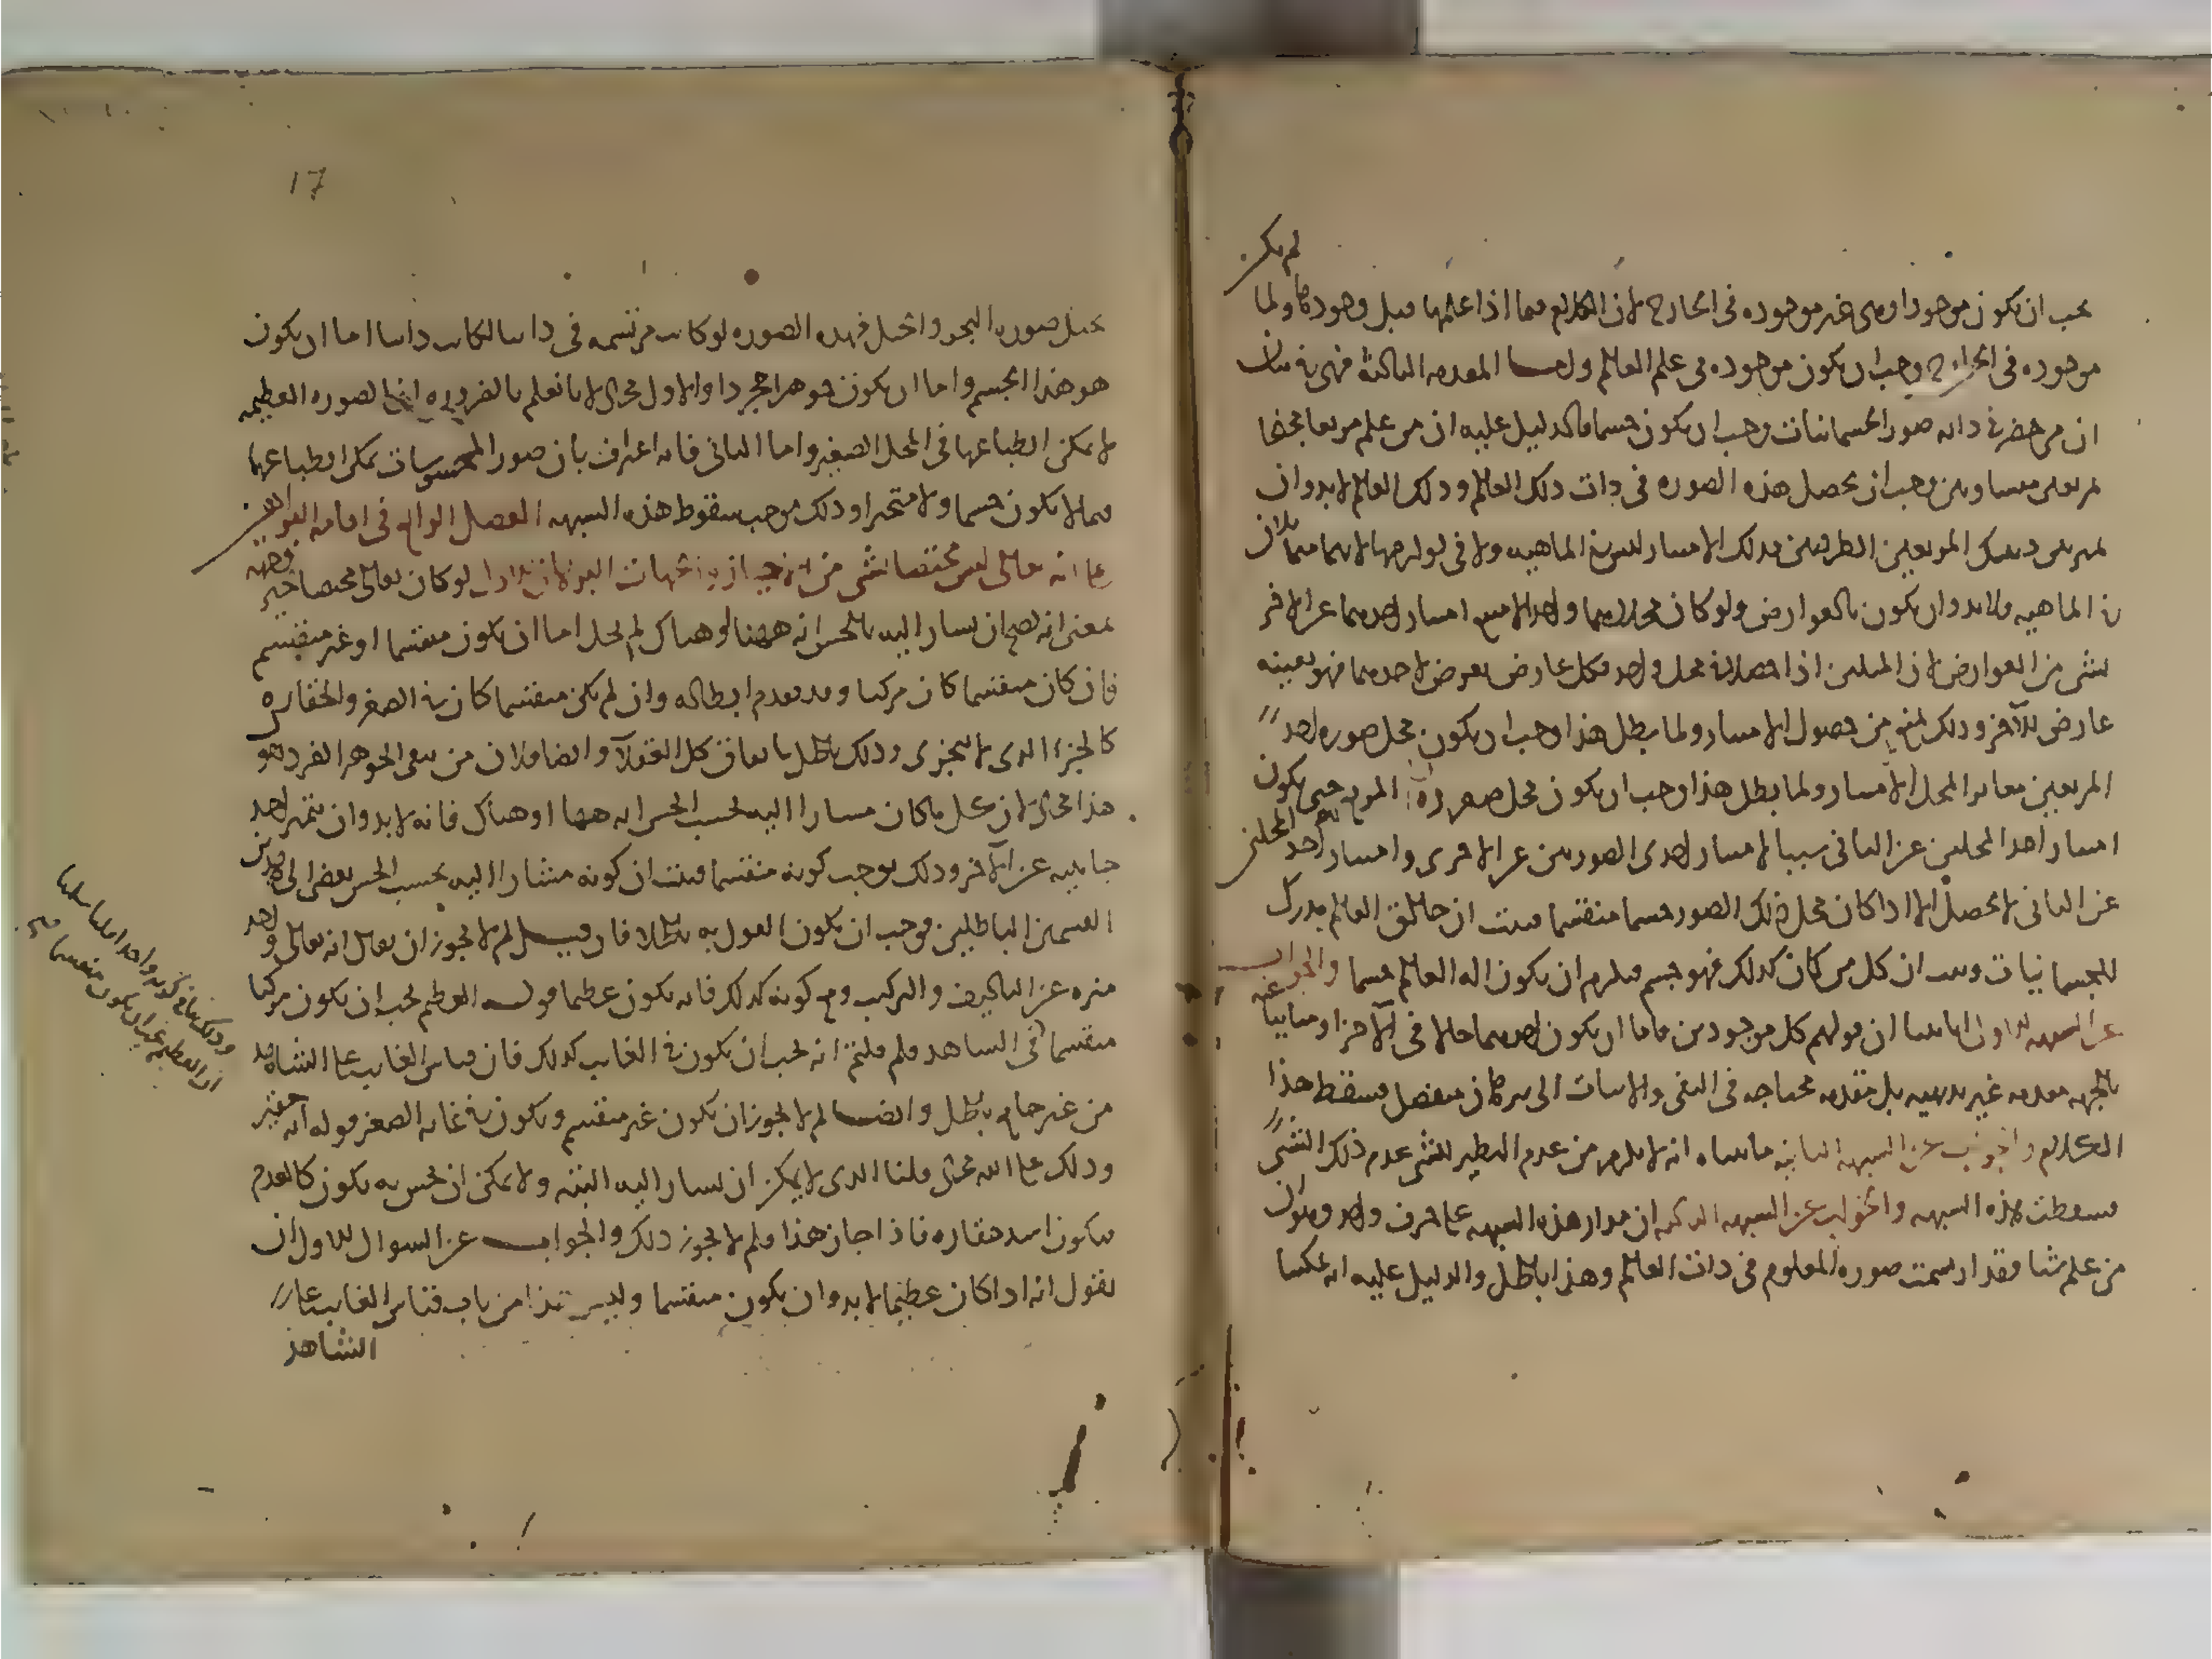 لم يكن
يجب ان يكون موجودا وهى غير موجوده فى الخارج لان الكلام فيما اذا علمها قبل وجودها ولما
موجوده فى الخارج وجب ان يكون موجوده فى علم العالم واما المقدمه الثالثة فهى فى بيان
ان من حضر فى ذاته صور الجسمانيات وجب ان يكون جسما فالدليل عليه ان من علم مربعا مجنحا
بمربعين متساويين وجب ان يحصل هذه الصوره فى ذات ذلك العالم وذلك العالم لا بد وان
يميز بين ذينك المربعين الطرفين فذلك الامتياز ليس فى الماهيه ولا فى لوازمها لانهما متماثلان
فى الماهيه فلا بد وان يكون بالعوارض ولو كان محلاهما واحدا لامتنع امتياز احدهما عن الاخر
بشى من العوارض لان المثلين اذا حصلا فى محل واحد فكل عارض يعرض لاحدهما فهو بعينه
عارض للآخر وذلك يمنع من حصول الامتياز ولما بطل هذا وجب ان يكون محل صوره احد
المربعين مغايرا لمحل الامتياز ولما بطل هذا وجب ان يكون محل صوره المربع حتى يكون
امتياز احد المحلين عن الثانى سببا لامتياز احدى الصورتين عن الاخرى وامتياز احد المحلين
عن الثانى لا يحصل الا اذا كان محل ذلك الصور جسما منقسما فثبت ان خالق العالم يدرك
للجسمانيات وثبت ان كل من كان كذلك فهو جسم فيلزم ان يكون اله العالم جسما والجواب
عن الشبهه الاولى انا بينا ان قولهم كل موجودين فاما ان يكون احدهما حالا فى الآخر او مباينا عنه
بالجهه مقدمه غير بديهيه بل مقدمه محتاجه فى النفى والاثبات الى برهان منفصل فسقط هذا
الكلام والجواب عن الشبهه الثانيه ما بيناه انه لا يلزم من عدم النظير للشى عدم ذلك الشى
فسقطت هذه الشبهه والجواب عن الشبهه الثالثه ان مدار هذه الشبهه على حرف واحد وهو ان
من علم شيا فقد ارتسمت صوره المعلوم فى ذات العالم وهذا باطل والدليل عليه انه يمكننا
17
تخيل صوره البحر والجبل فهذه الصوره لو كانت مرتسمه فى ذاتنا لكانت ذاتنا اما ان يكون
هو هذا الجسم واما ان يكون جوهرا مجردا والاول محال لانا نعلم بالضروره ان الصوره العظيمه
لا يمكن انطباعها فى المحل الصغير واما الثانى فانه اعتراف بان صور المحسوسات يمكن انطباعها
فيما لا يكون جسما ولا متحيزا وذلك يوجب سقوط هذه الشبهه الفصل الرابع فى اقامه البراهين
على انه تعالى ليس مختصا بشى من الاحياز والجهات البرهان الاول لو كان تعالى مختصا بحيز وجهه
بمعنى انه يصح ان يشار اليه بالحس انه ههنا او هناك لم يخل اما ان يكون منقسما او غير منقسم
فان كان منقسما كان مركبا وقد تقدم ابطاله وان لم يكن منقسما كان فى الصغر والحقاره
كالجزء الذى لا يتجزى وذلك باطل باتفاق كل العقلآ وايضا فلان من ينفى الجوهر الفرد هو
هذا محال لان كل ما كان مشارا اليه بحسب الحس انه ههنا او هناك فانه لا بد وان يتميز احد
جانبيه عن الآخر وذلك يوجب كونه منقسما فثبت ان كونه مشارا اليه بحسب الحس يفضى الى هذين
القسمين الباطلين فوجب ان يكون القول به باطلا فان قيل لم لا يجوز ان يقال انه تعالى واحد
منزه عن التاليف والتركيب ومع كونه كذلك فانه يكون عظيما قوله العظيم يجب ان يكون مركبا
منقسما فى الشاهد فلم قلتم انه يجب ان يكون فى الغايب كذلك فان قياس الغايب على الشاهد
من غير جامع باطل وايضا لم لا يجوز ان يكون غير منقسم ويكون فى غايه الصغر قوله انه حقير
وذلك على الله محال قلنا الذى لا يمكن ان يشار اليه البته ولا يمكن ان يحس به يكون كالعدم
فيكون اشد حقاره فاذا جاز هذا فلم لا يجوز ذلك والجواب عن السوال الاول ان
نقول انه اذا كان عظيما لا بد وان يكون منقسما وليس هذا من باب قياس الغايب على
الشاهد
وذلك ينافى كونه واحدا قلنا سلمنا
ان العظيم يجب ان يكون منقسما